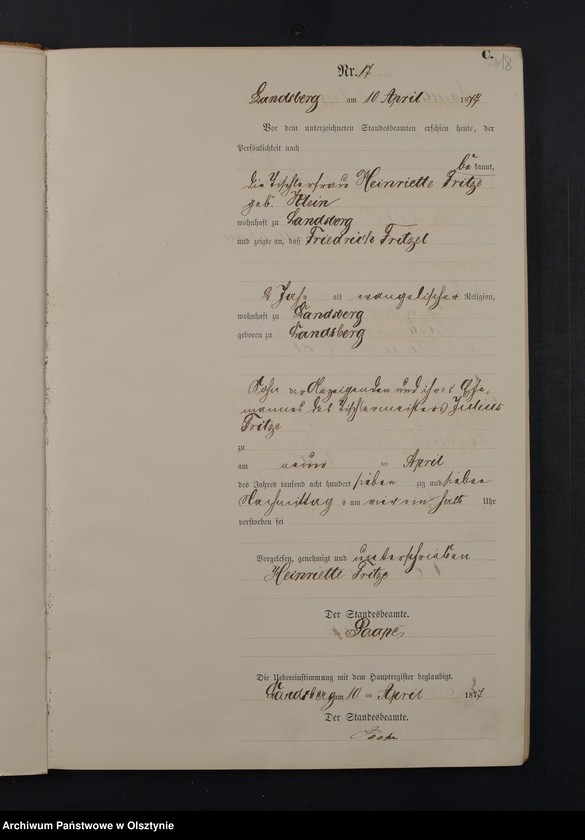 C.
18
Nr. 17
Landsberg am 10 April 1877
Vor dem unterzeichneten Standesbeamten erschien heute, der
Persönlichkeit nach
be kannt,
die Tischlerfrau Heinriette Fritze
geb. Klein
wohnhaft zu Landsberg
und zeigte an, daß Friedrich Fritzel
2 Jahr alt evangelischer Religion,
wohnhaft zu Landsberg
geboren zu Landsberg
Sohn der Anzeigenden und ihres Ehe-
mannes des Tischlermeisters Julius
Fritze
zu
am neun ten April
des Jahres tausend acht hundert sieben zig und sieben
Nachmittag s um vier ein halb Uhr
verstorben sei
Vorgelesen, genehmigt und unterschrieben
Heinriette Fritze
Der Standesbeamte.
Paape
Die Uebereinstimmung mit dem Hauptregister beglaubigt.
Landsberg am 10 ten April 1877
Der Standesbeamte.
Paape
Archiwum Państwowe w Olsztynie